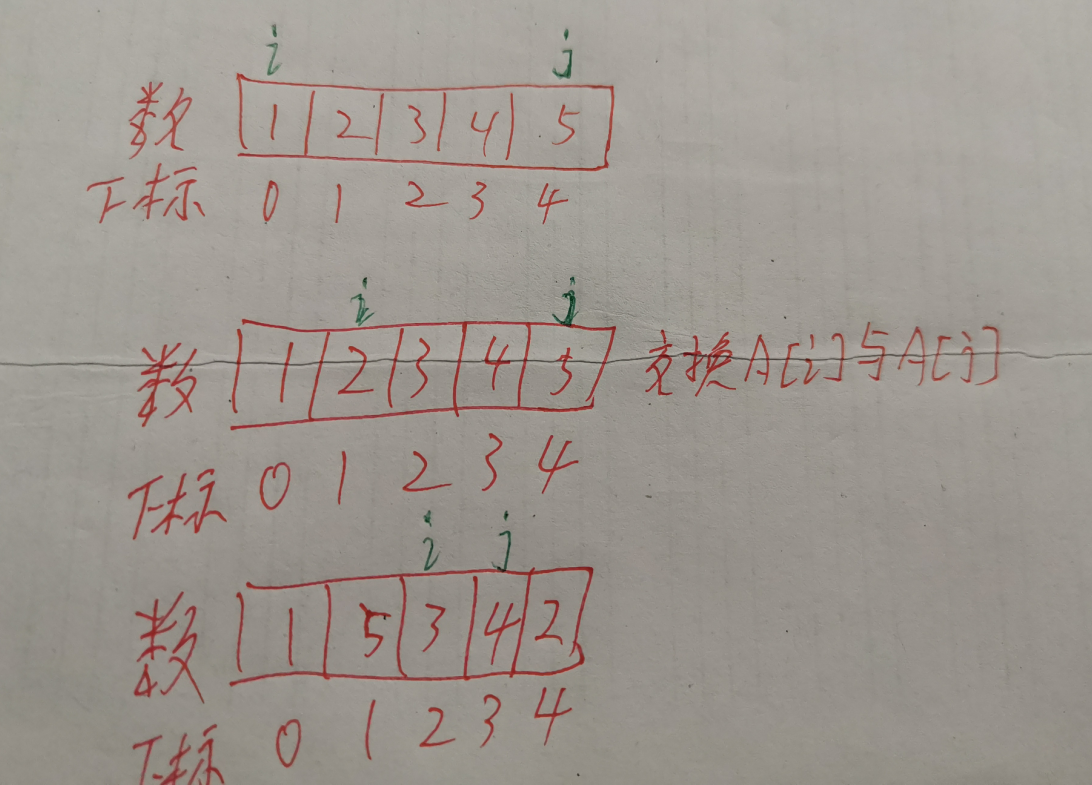 i j
数 1 2 3 4 5
下标 0 1 2 3 4
i j
数 1 2 3 4 5 交换A[i]与A[j]
下标 0 1 2 3 4
i j
数 1 5 3 4 2
下标 0 1 2 3 4